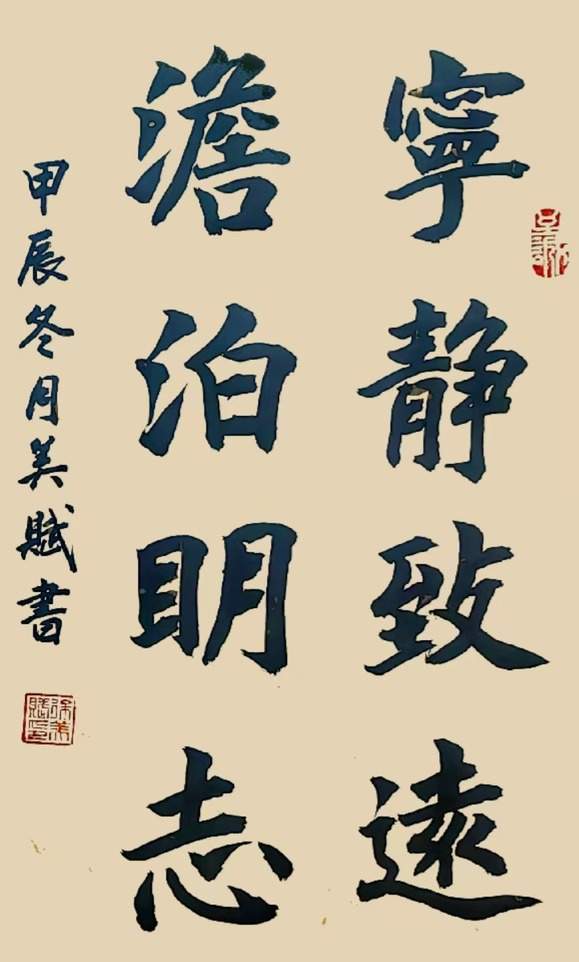 寧靜致遠
澹泊明志
甲辰冬月美賦書